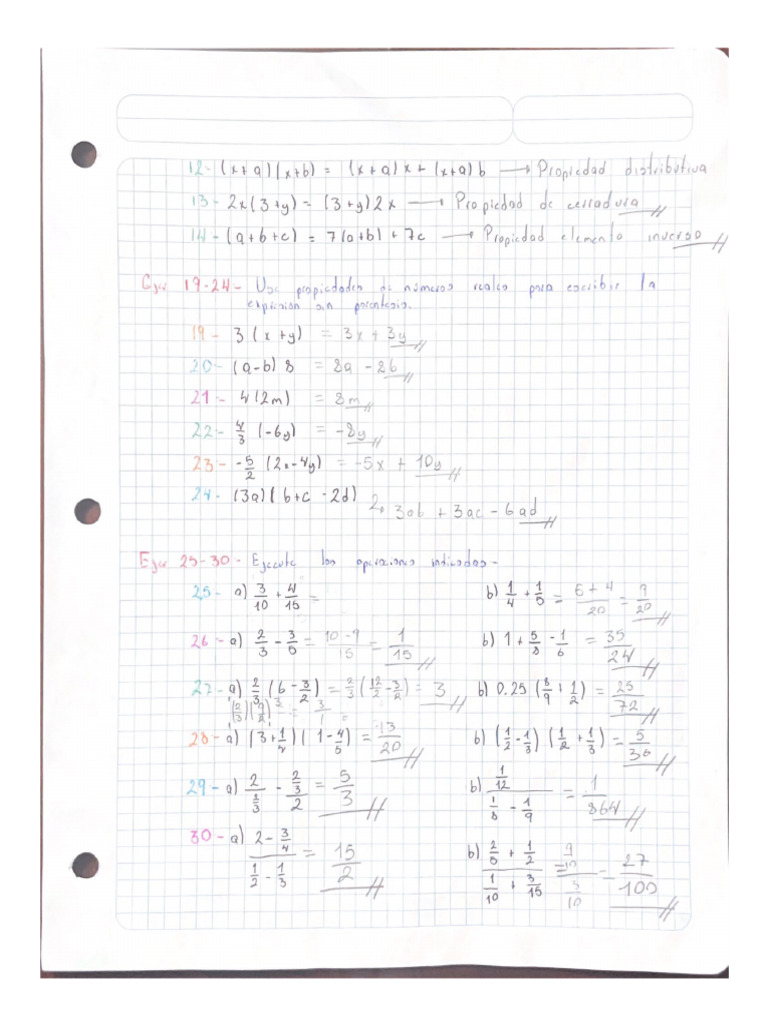 12- (x+a)(x+b) = (x+a)x + (x+a)b → Propiedad distributiva
13- 2x(3+y) = (3+y)2x → Propiedad de cerradura
14- (a+b+c) = 7(a+b) + 7c → Propiedad elemento inverso
Ejer 19-24- Use propiedades de números reales para escribir la
expresión sin paréntesis.
19- 3(x+y) = 3x + 3y
20- (a-b)8 = 8a - 8b
21- 4(2m) = 8m
22- 4/3 (-6y) = -8y
23- -5/2 (2x-4y) = -5x + 10y
24- (3a)(b+c-2d) = 3ab + 3ac - 6ad
Ejer 25-30- Ejecute las operaciones indicadas-
25- a) 3/10 + 4/15 = b) 1/4 + 1/5 = 5+4/20 = 9/20
26- a) 2/3 - 3/5 = 10-9/15 = 1/15 b) 1 + 5/8 - 1/6 = 35/24
27- a) 2/3 (6 - 3/2) = 2/3 (12/2 - 3/2) = 3 b) 0.25 (8/9 + 1/2) = 25/72
(2/3)(9/2) = 3/1
28- a) (3 + 1/4)(1 - 4/5) = 13/20 b) (1/2 - 1/3)(1/2 + 1/3) = 5/36
29- a) 2/(2/3) - (2/3)/2 = 5/3 b) (1/12)/(1/8 - 1/9) = 1/864
30- a) (2 - 3/4)/(1/2 - 1/3) = 15/2 b) (2/5 + 1/2)/(1/10 + 3/15) = (9/10)/(3/10) = 27/100